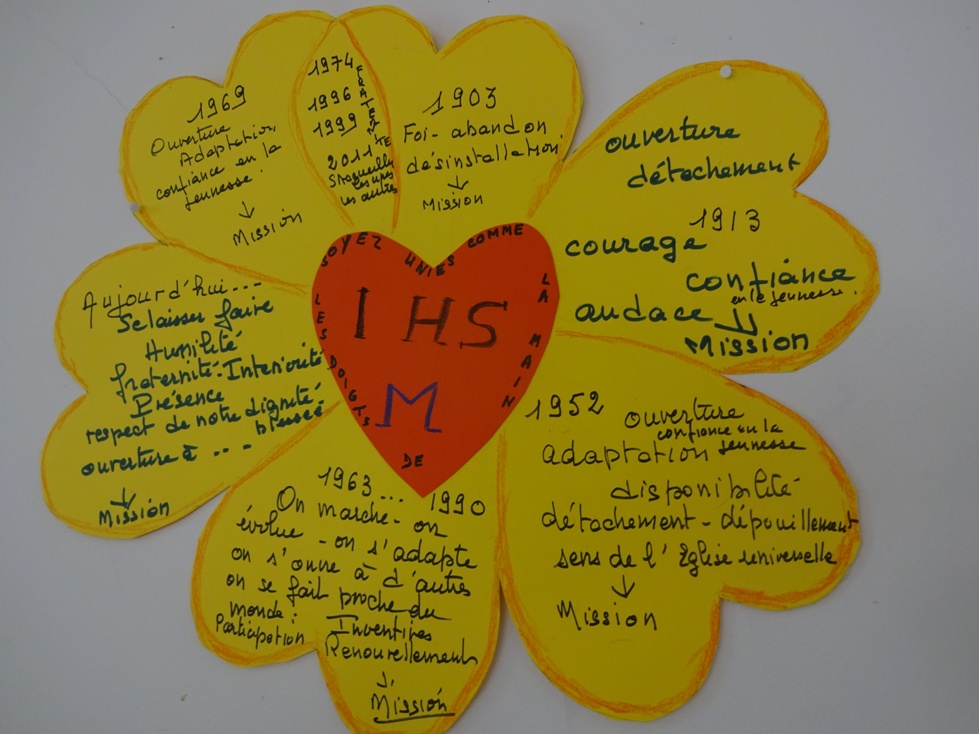 1969
Ouverture
Adaptation,
confiance en la
jeunesse!
Mission
1974
1996
1999
2011
S'accueillir
les unes
les autres
FRATERNITE
1903
Foi - abandon
désinstallation
Mission
ouverture
détachement
1913
courage
confiance
en la jeunesse!
audace
Mission
SOYEZ UNIES COMME LES DOIGTS DE LA MAIN
I HS
M
Aujourd'hui...
Se laisser faire
Humilité
fraternité-Intériorité
Présence
respect de notre dignité
blessée
ouverture à ...
Mission
1963... 1990
On marche - on
évolue - on s'adapte
on s'ouvre à d'autres
on se fait proche du
monde:
Participation
Inventives
Renouvellement
Mission
1952
ouverture
confiance en la
jeunesse
adaptation
disponibilité
détachement - dépouillement
sens de l'Eglise universelle
Mission